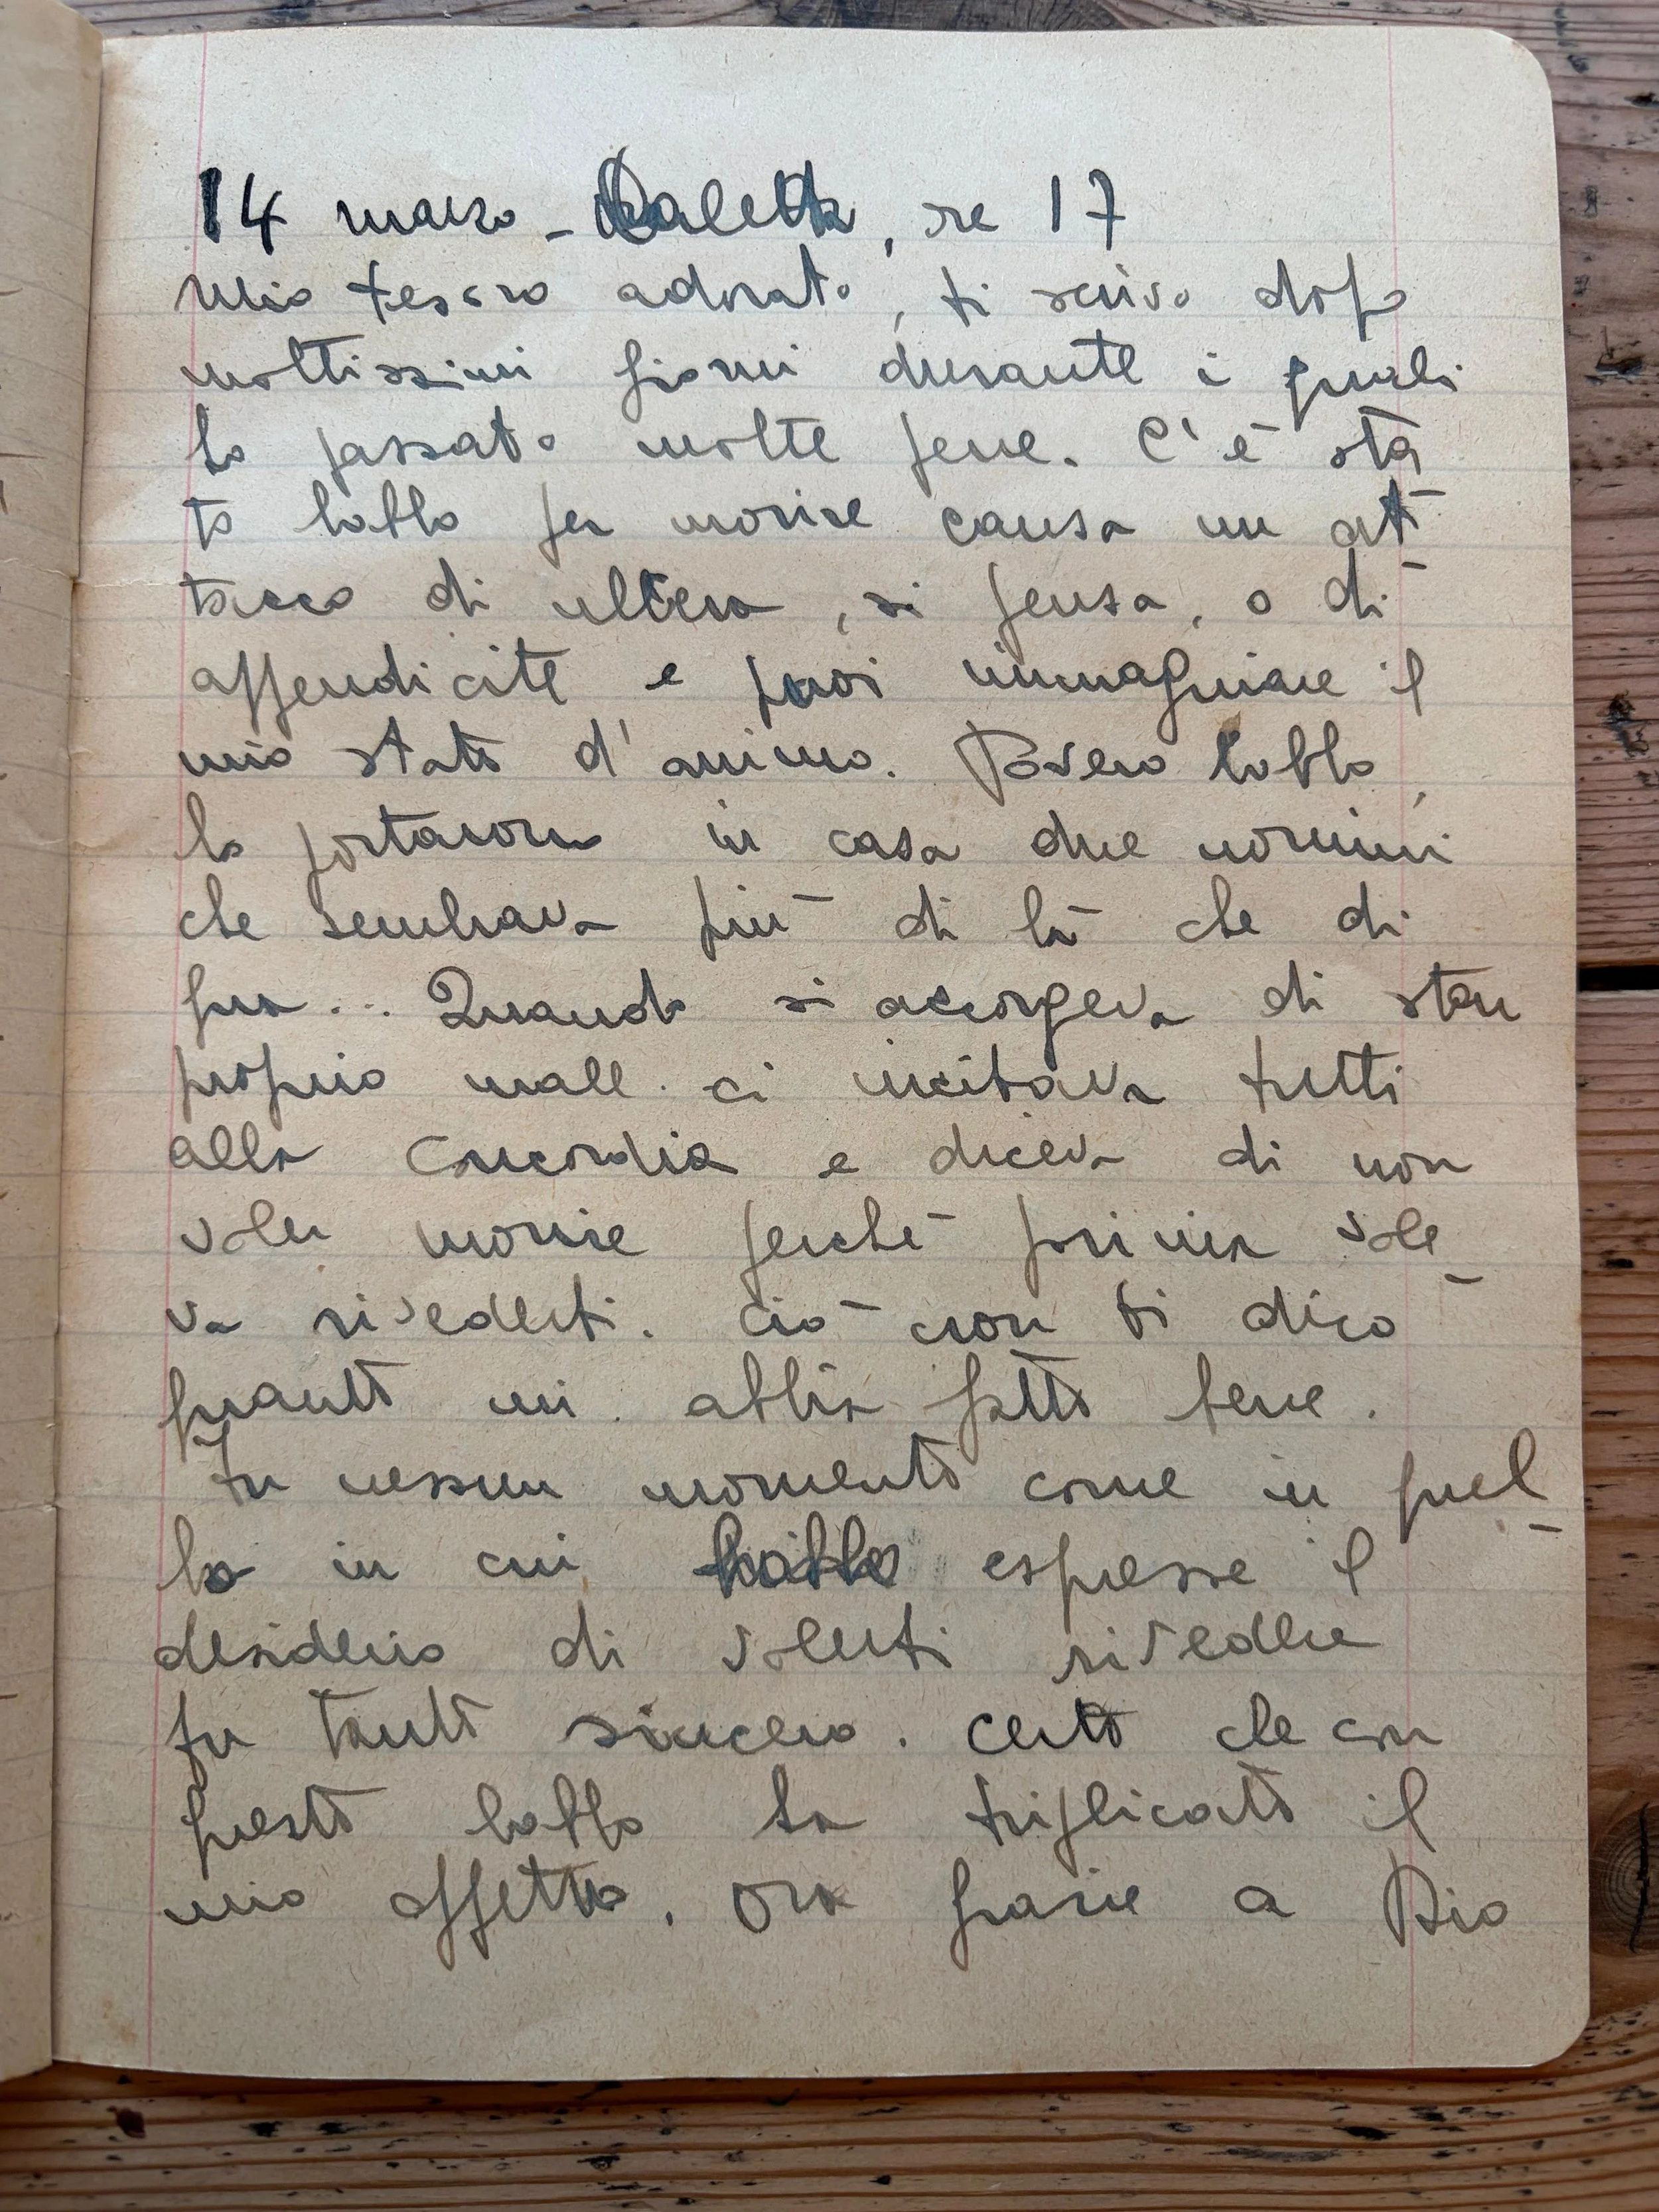 14 marzo - Caletta, re 17
Mio tesoro adorato, ti scrivo dopo
moltissimi giorni durante i quali
ho passato molte pene. C'è sta
to babbo per morire causa un at-
tacco di ulcera, si pensa, o di
appendicite e puoi immaginare il
mio stato d'animo. Povero babbo,
lo portarono in casa due uomini
che sembrava più di là che di
qua... Quando si accorgeva di star
proprio male ci incitava tutti
alla concordia e diceva di non
voler morire perché prima vole-
va rivederti. Ciò non ti dico
quanto mi abbia fatto bene.
In nessun momento come in quel-
lo in cui babbo espresse il
desiderio di volerti rivedere
fu tanto sincero. Certo che con
questo babbo ha triplicato il
mio affetto. Ora grazie a Dio